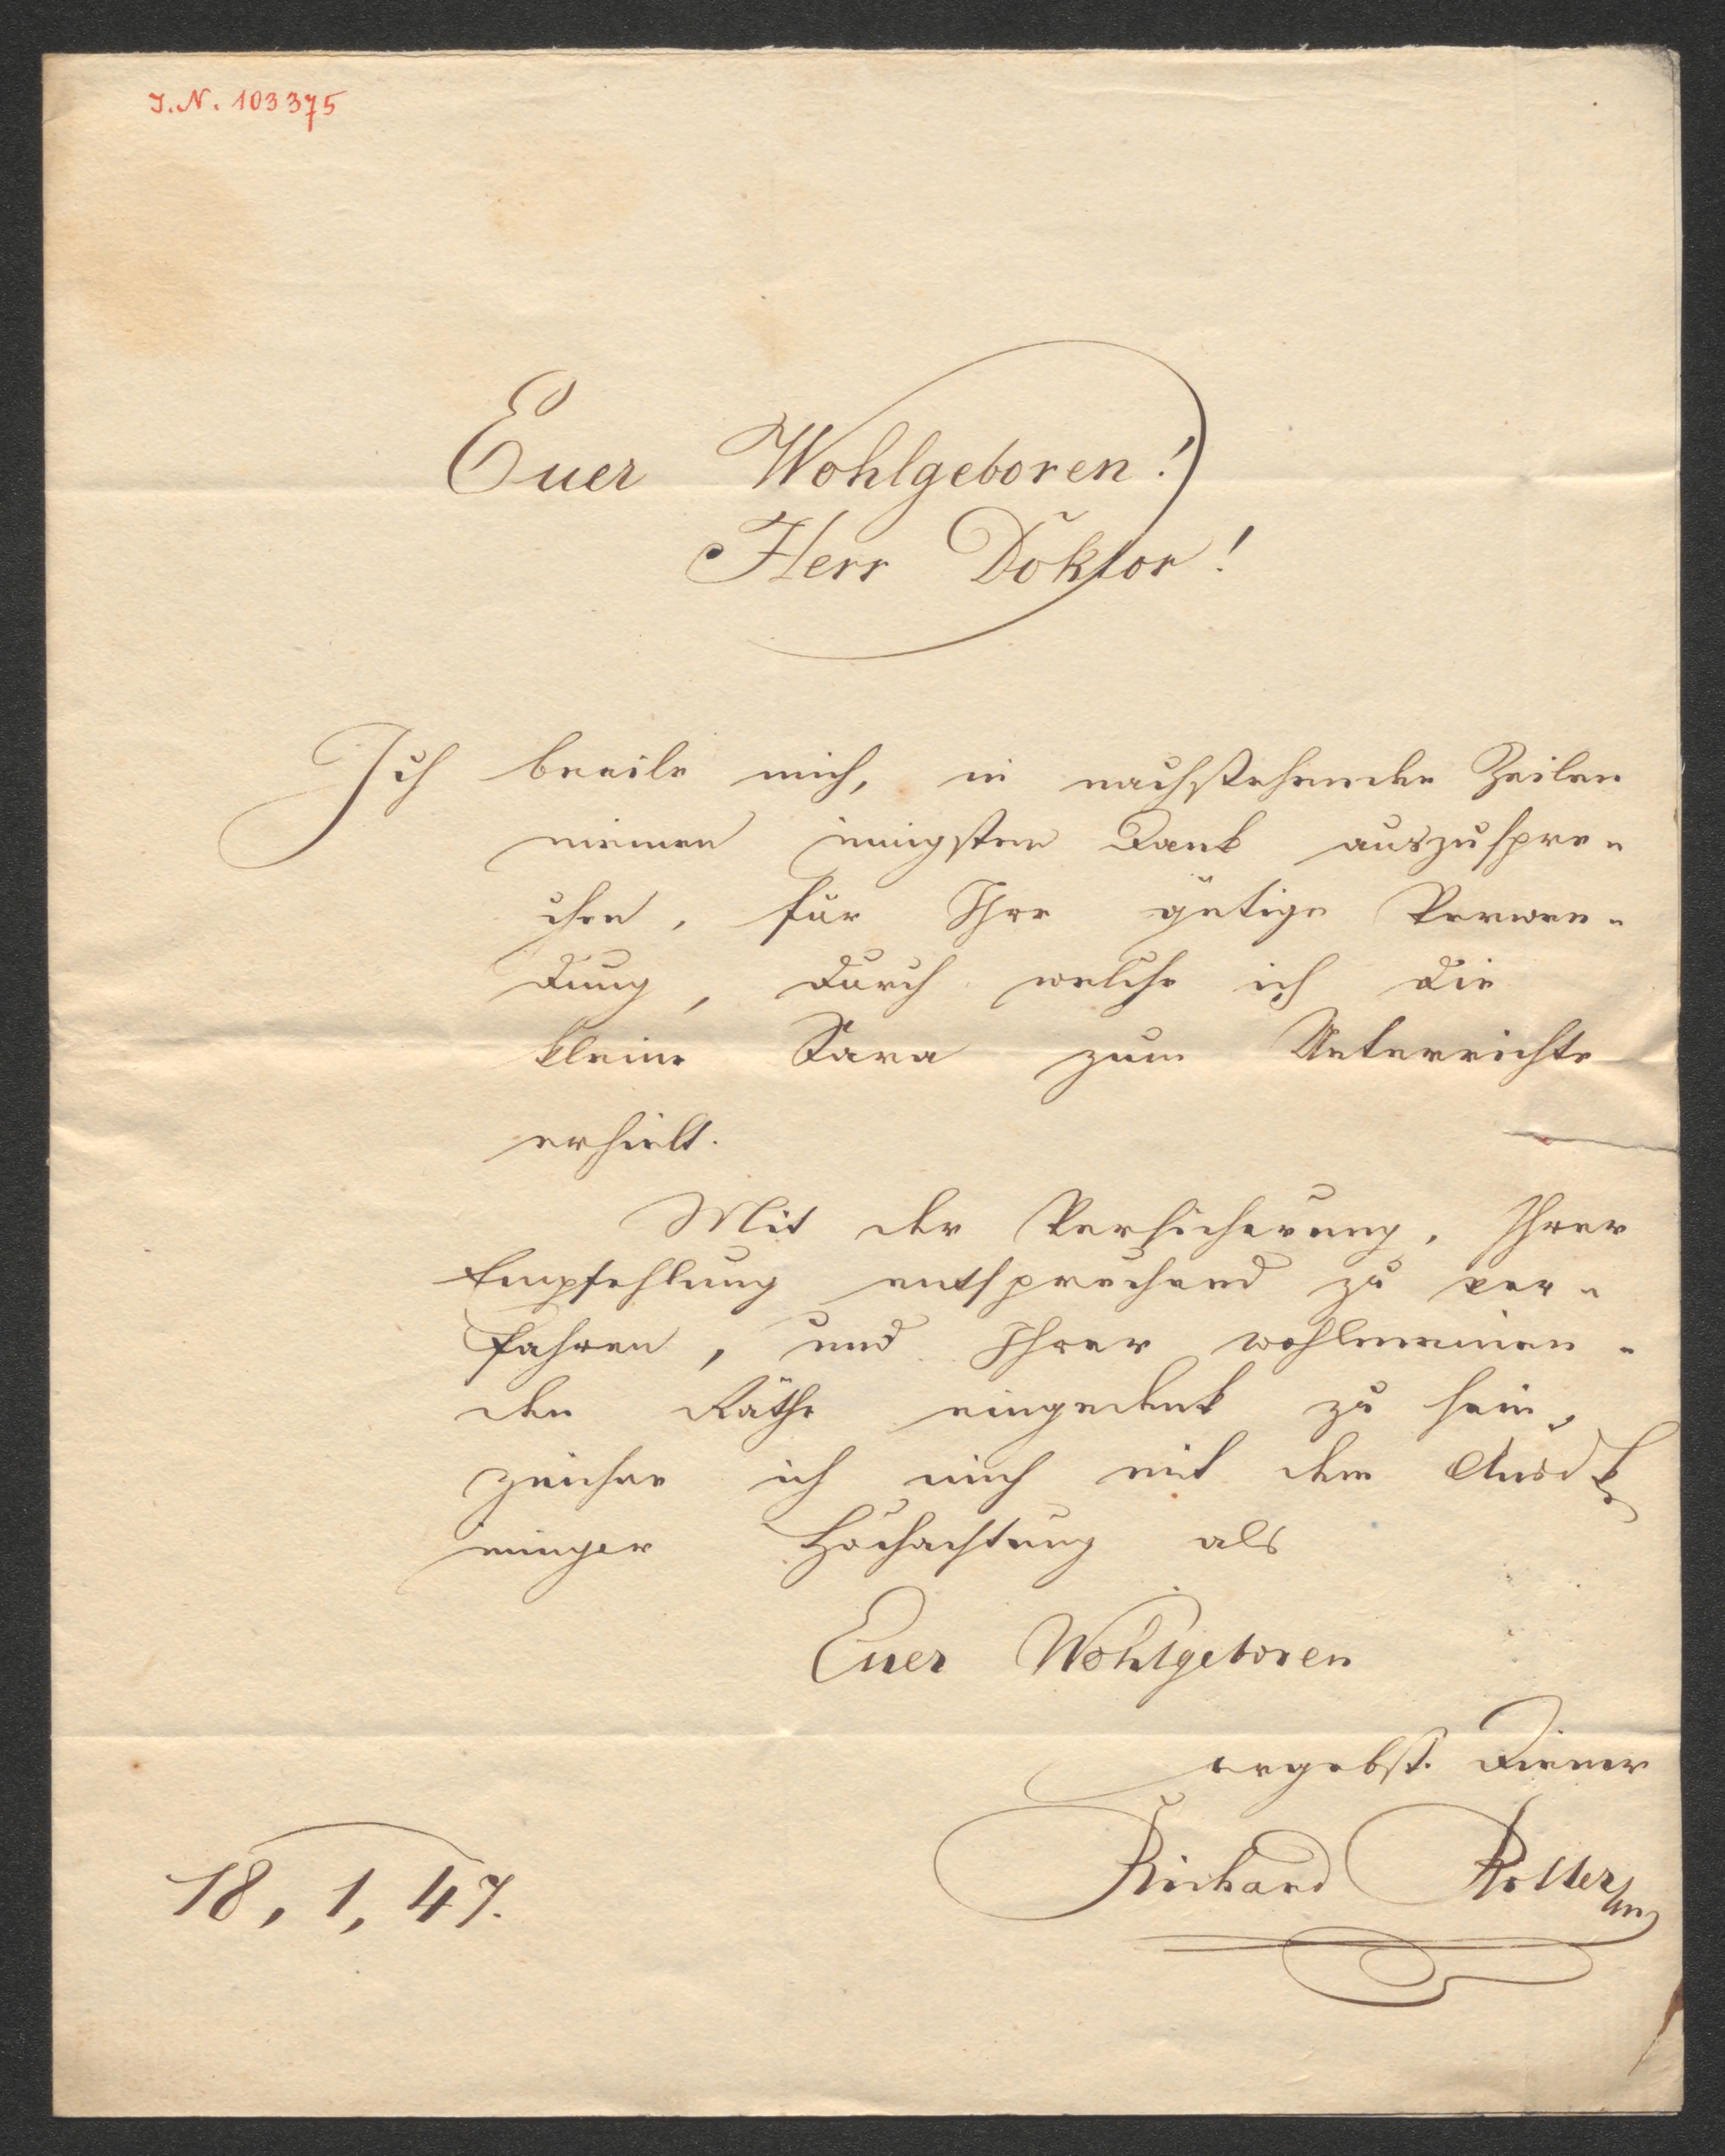 J. N. 103375
Euer Wohlgeboren!
Herr Doktor!
Ich beeile mich, in nachstehenden Zeilen
meinen innigsten Dank auszuspre-
chen, für Ihre gütige Verwen-
dung, durch welche ich die
kleine Sara zum Unterrichte
erhielt.
Mit der Versicherung, Ihrer
Empfehlung entsprechend zu ver-
fahren, und Ihrer wohlmeinen-
den Räthe eingedenk zu sein,
zeichne ich mich mit dem Ausdk
inniger Hochachtung als
Euer Wohlgeboren
ergebst. Diener
Richard
18, 1, 47.